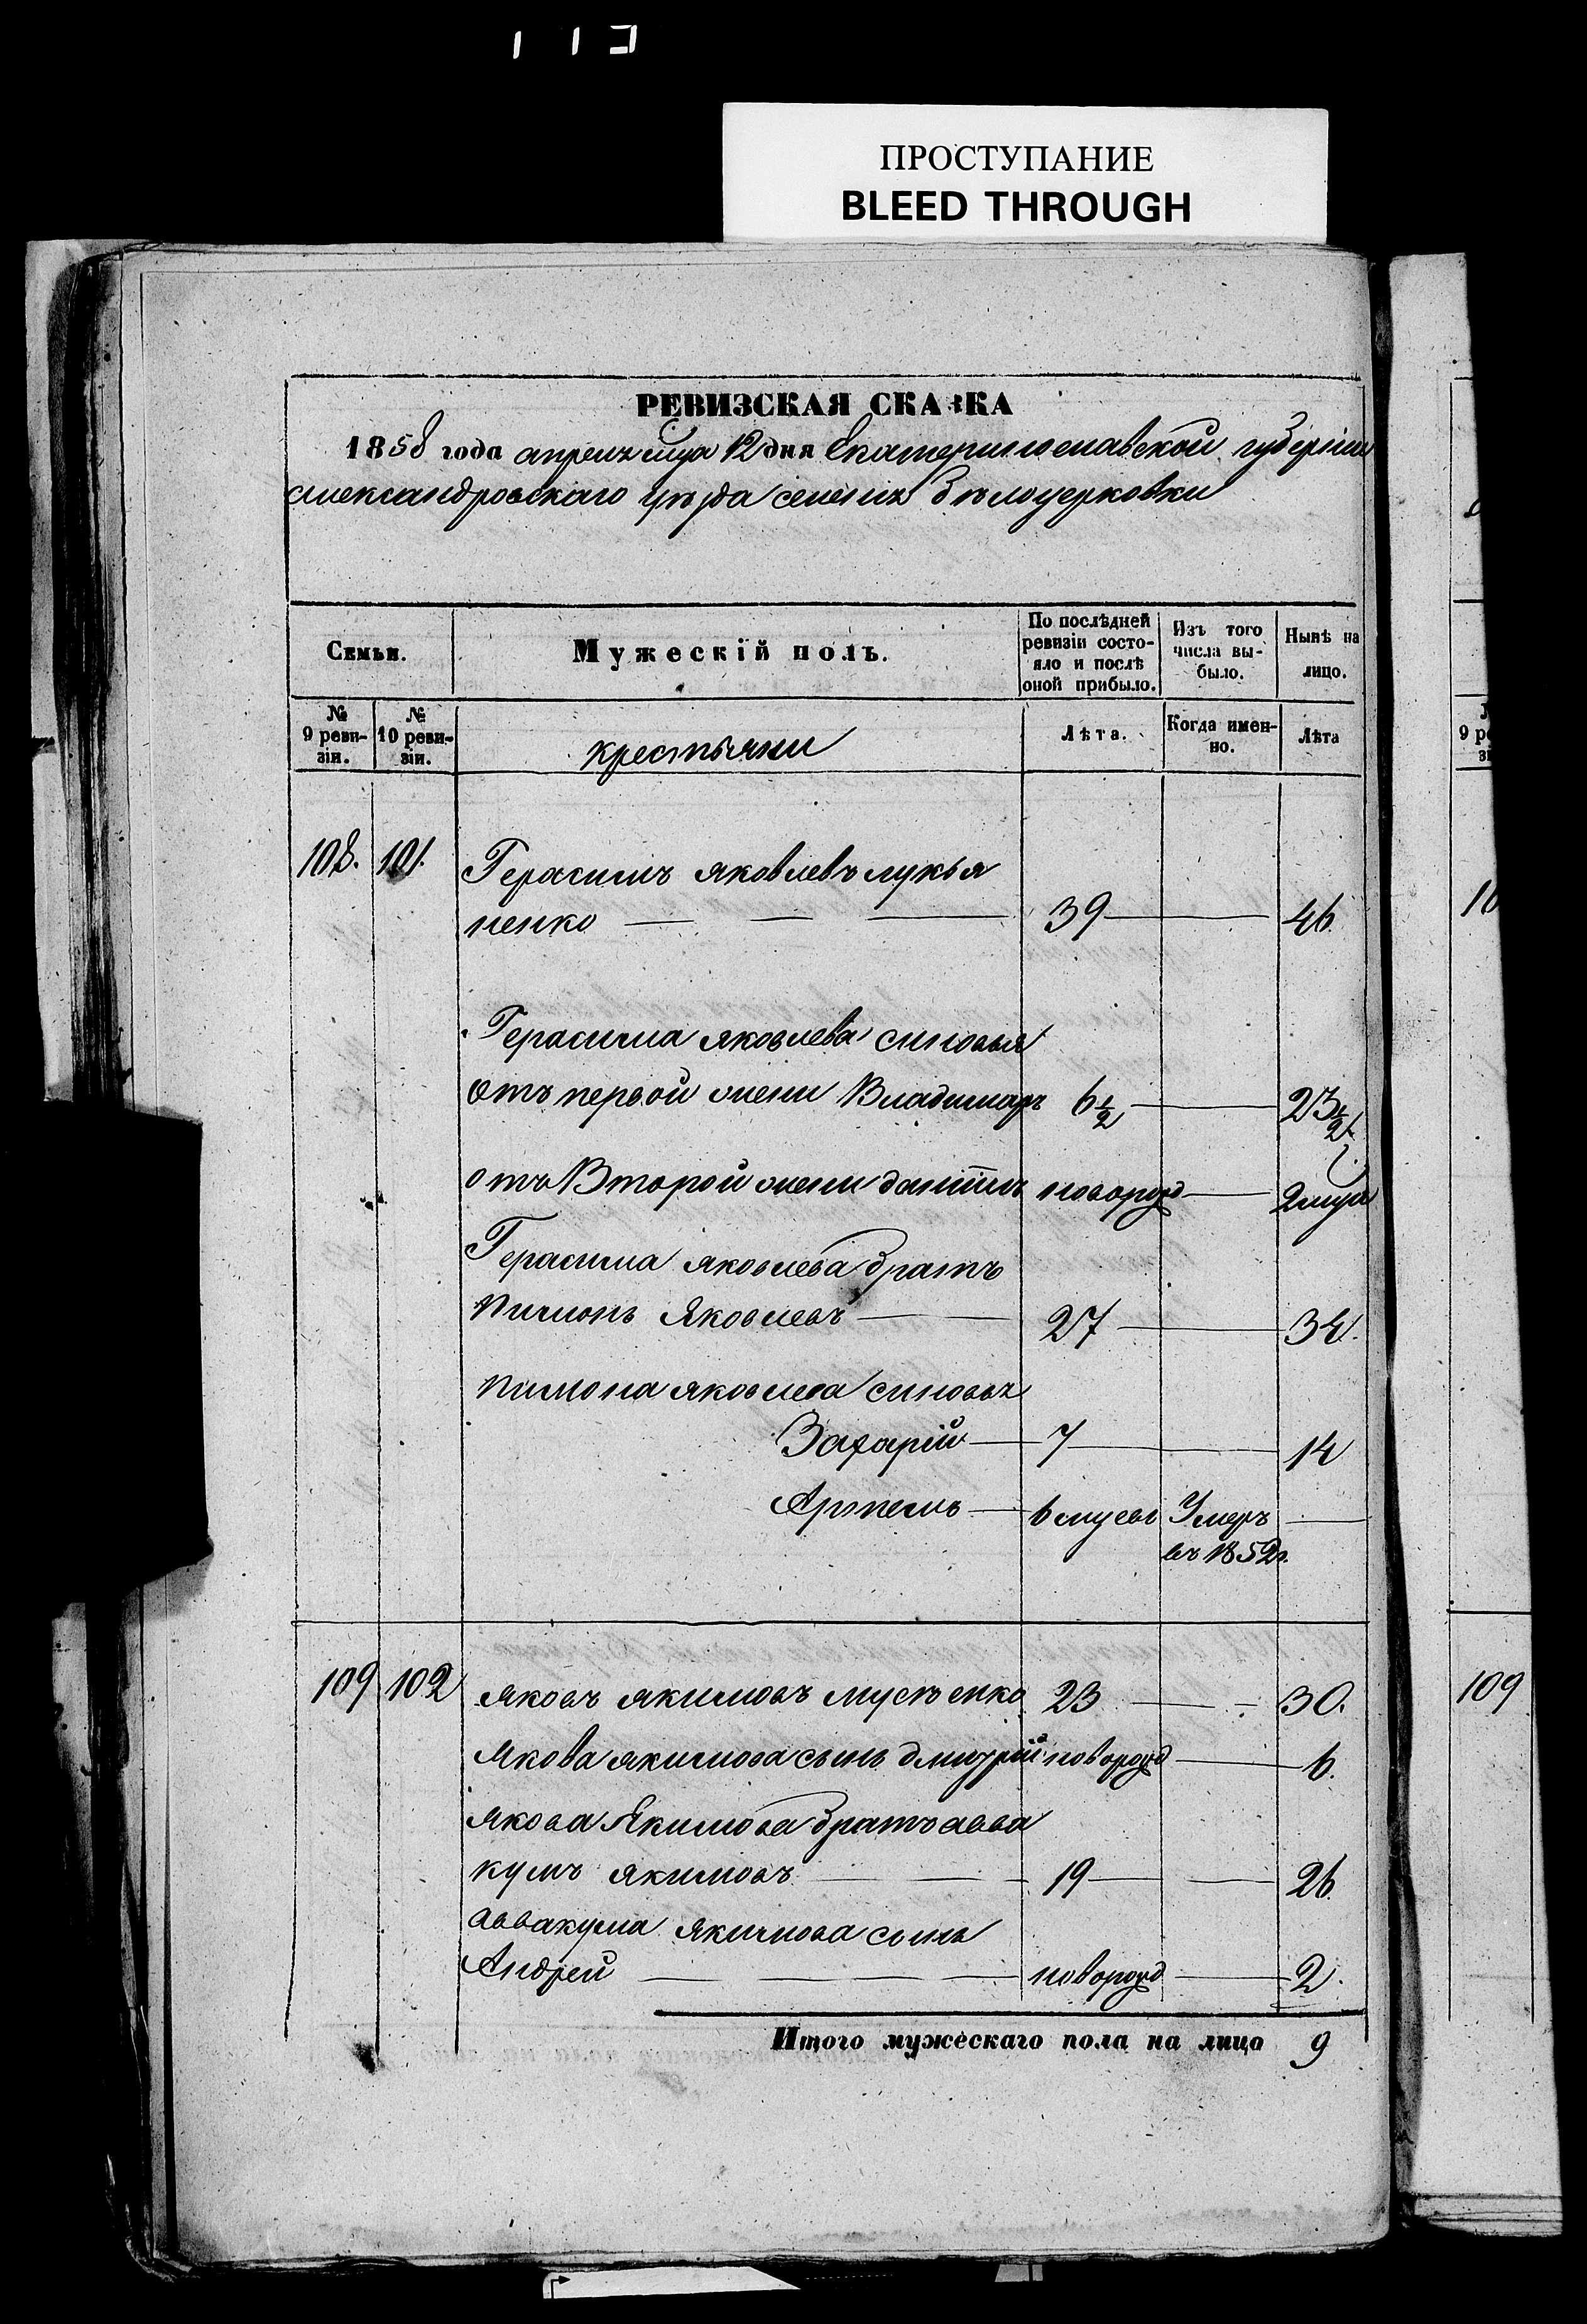 113
ПРОСТУПАНИЕ
BLEED THROUGH
РЕВИЗСКАЯ СКАЗКА
1858 года апреля мца 12 дня Екатеринославской губерніи
александровскаго уѣзда селенія бѣлоцерковки
Семьи.
Мужескій полъ.
По послѣдней ревизіи состояло и послѣ оной прибыло.
Изъ того числа выбыло.
Нынѣ на лицо.
№ 9 ревизіи.
№ 10 ревизіи.
крестьяни
Лѣта.
Когда именно.
Лѣта
108. 101. Герасимъ яковлевъ лукья
ненко — — — 39 — — 46.
Герасима яковлева синовья
отъ первой жени Владимиръ 6½ — 23½
отъ Второй жени даніилъ новорожд — 2 мца
Герасима яковлева братъ
пимонъ Яковлевъ — — 27 — — 34.
пимона яковлева синовья
Захарій — 7 — — 14
Артемъ — 6 мцевъ Умеръ —
въ 1852г.
109 102 яковъ якимовъ мусѣенко 23 — — 30.
Якова якимова сынъ дмитрій новорожд — 6.
якова Якимова братъ авва
кумъ якимовъ — — 19 — — 26
аввакума якимова сынъ
Андрей — — — новорожд — 2.
Итого мужескаго пола на лицо 9
9 ре
109